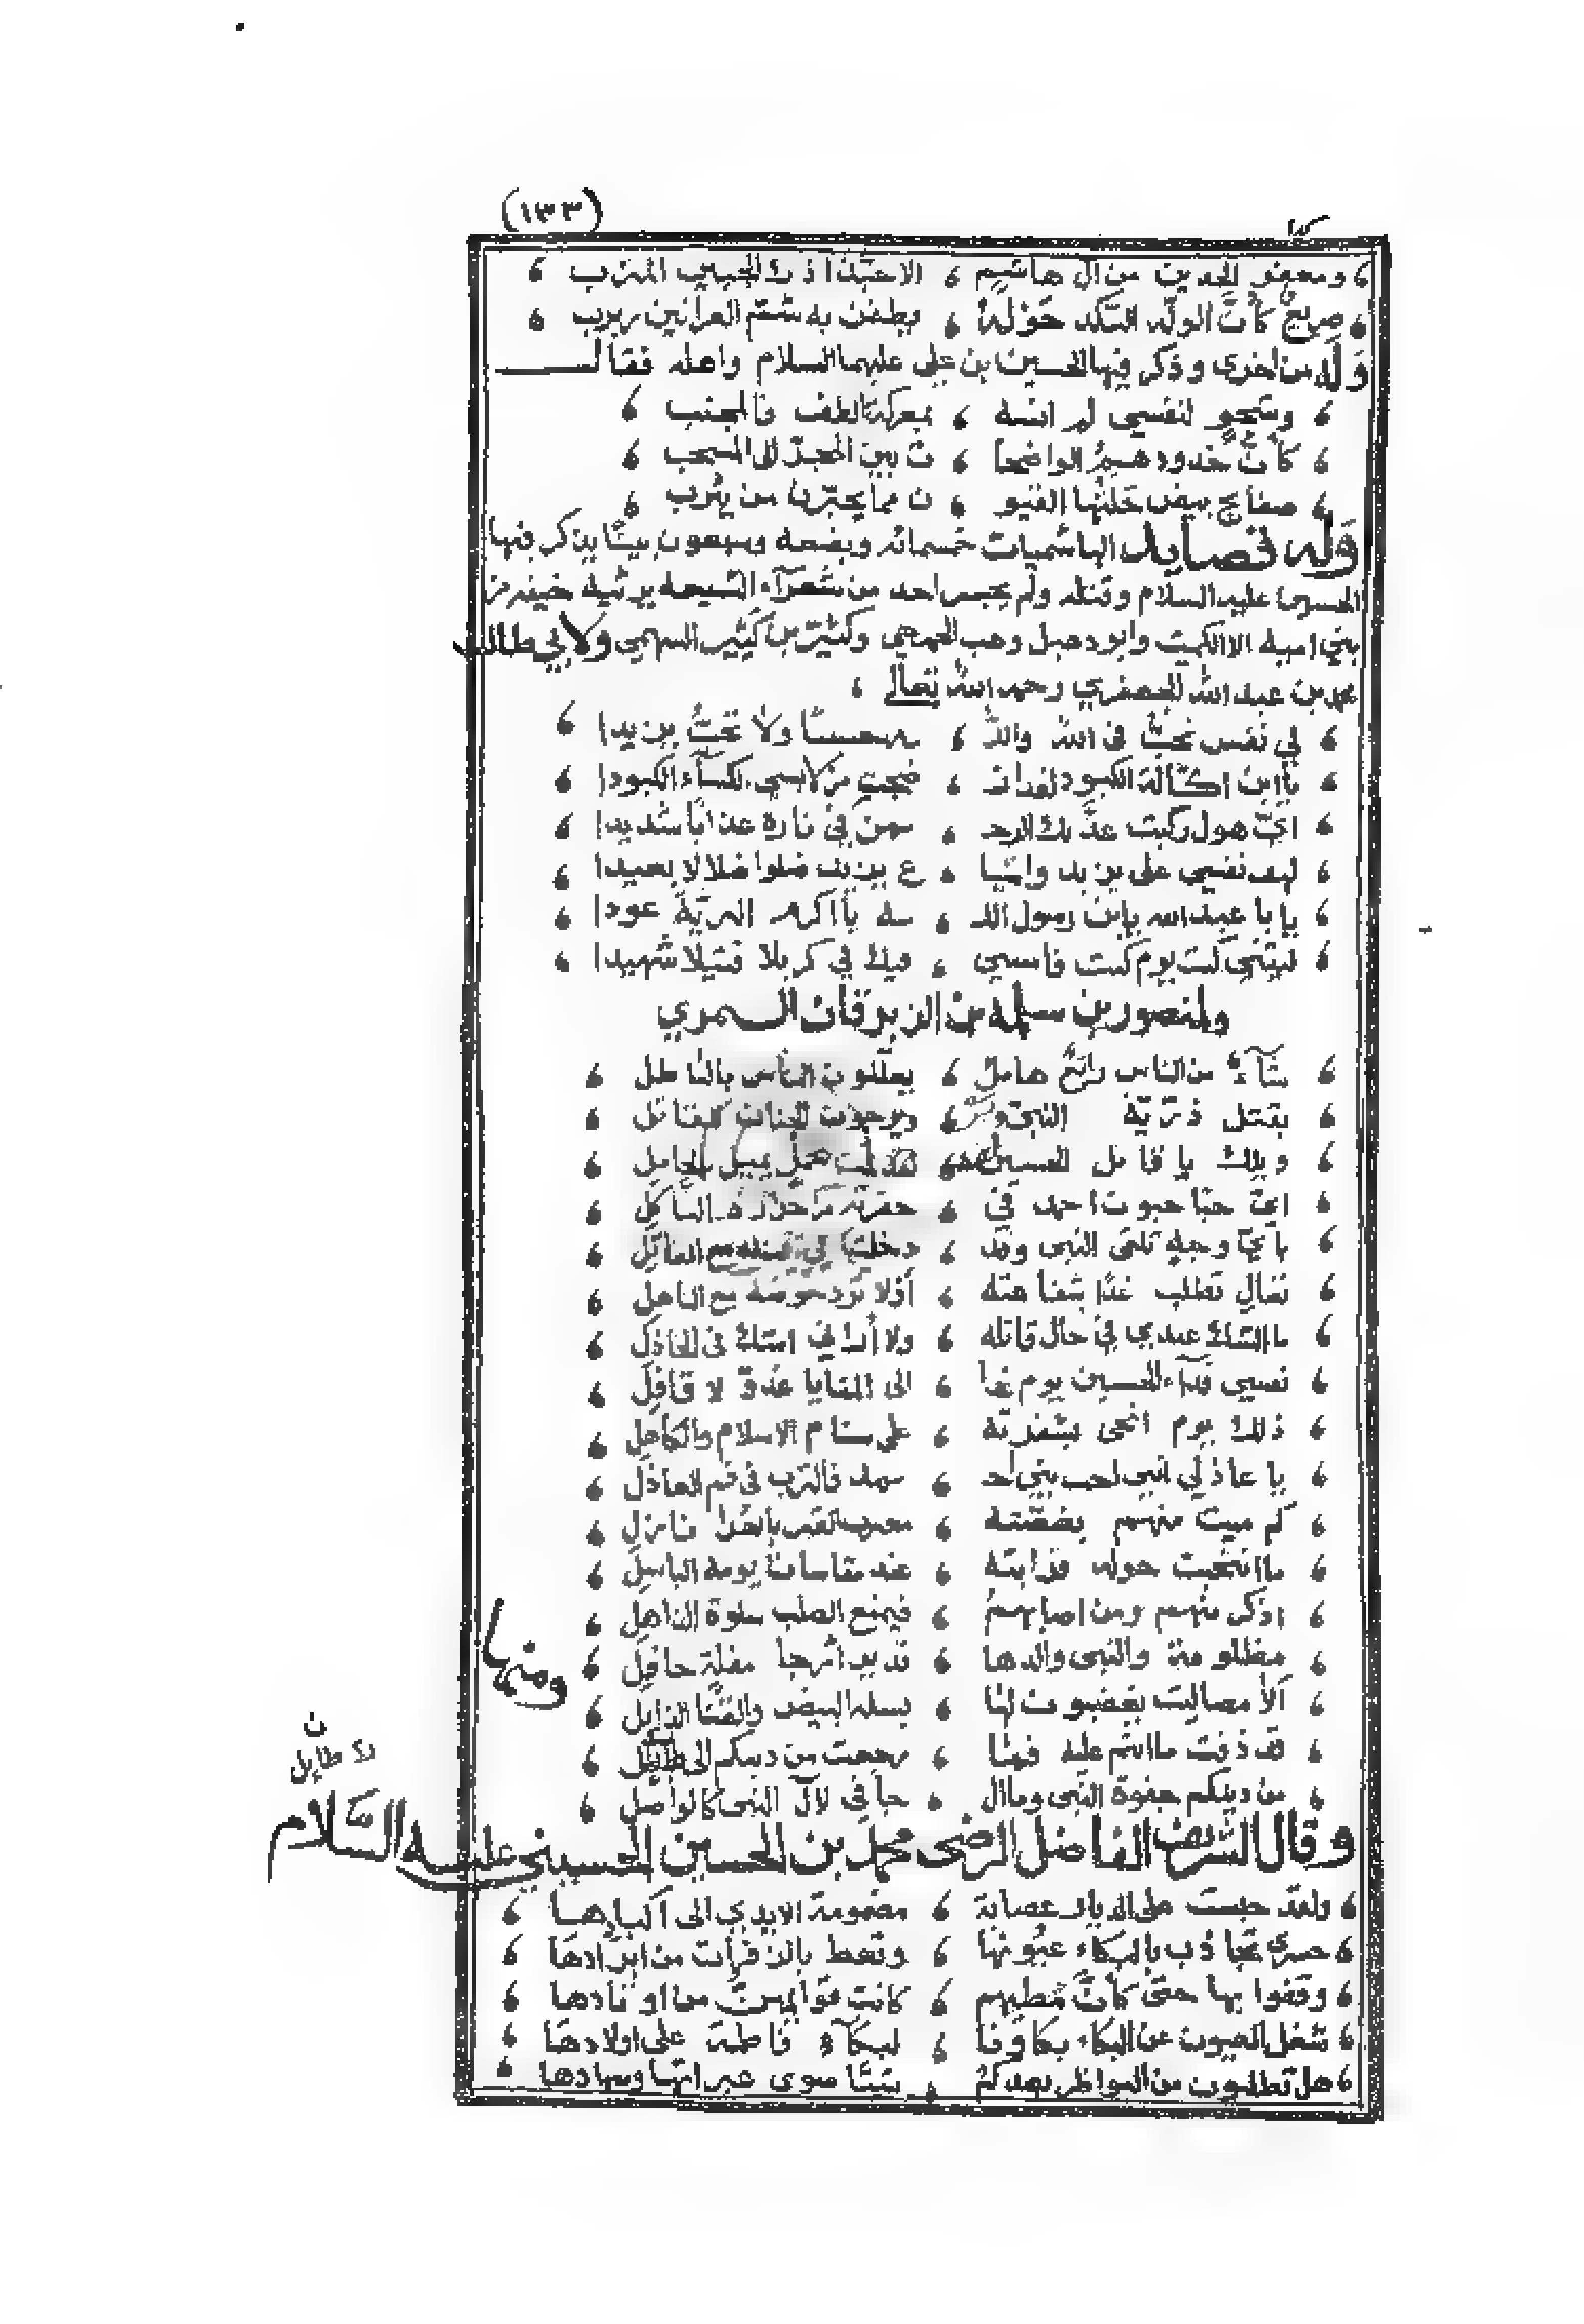 (١٣٣)
ومعفر الخدين من آل هاشم ، الا حبذا ذاك الحبيب المترب
صريع كأن الولّه النكد حوله ، يطفن به شمّ العرانين ربرب
وله من اخرى وذكر فيها الحسين بن علي عليهما السلام واهله فقال
وشجو لنفسي لم انسه ، بمعركة الطف فالمجنب
كأن خدودهم الواضحا ، ت بين المجرّ الى المسحب
صفايح بيض جلتها القيو ، ن مما يخيّرن من يثرب
وله قصايد الهاشميات خمسمائه وبضعه وسبعون بيتًا يذكر فيها
الحسين عليه السلام وقتله ولم يجسر احد من شعرآء الشيعه يرثيه خيفة من
بني اميه الا الكميت وابو دهبل وهب الجمحي وكثيّر بن كثير السهمي ولابي طالب
محمد بن عبد الله الجعفري رحمه الله تعالى ،
لي نفس تحبّ في الله والله ، حسينًا ولا تحبّ يزيدا
يا ابن اكّالة الكبود لقد ان ، ضجت من لابسي الكسآء الكبودا
ايّ هول ركبت عذّبك الرحـ ، ـمن في ناره عذابًا شديدا
لهف نفسي على يزيد واشيا ، ع يزيد ضلوا ضلالا بعيدا
يا با عبد الله يا بن رسول اللـ ، ـه يا اكرم البريّة عودا
ليتني كنت يوم كنت فامسي ، فيك في كربلا قتيلا شهيدا
ولمنصور بن سلمة بن الزبرقان النمري
شآء من الناس راتع هامل ، يعللون الناس بالباطل
بقتل ذريّة النبيّ ويرجون الجنان للقاتل
ويلك يا قاتل الحسين لقد ، بحمل يميل بالحامل
ايّ حبا حبوت احمد في ، حفرته من حرارة الثاكل
بأيّ وجه تلقى النبي وقد ، دخلت في قتله مع القاتل
تعال تطلب غدًا شفاعته ، اولا تَرِد حوضه مع الناهل
ما الشك عندي في حال قاتله ، ولا أراني اشك في الخاذل
نفسي فدآء الحسين يوم غدا ، الى المنايا غدوّ لا قافل
ذلك يوم انحى بشفرته ، على سنام الاسلام والكاهل
يا عاذلي انني احب بني احـ ، ـمد فالترب في فم العاذل
كم ميت منهم بغصّته ، مغترب القبر بالعُرا نازل
ما انتحبت حوله قرابته ، عند مقاساة يومه الباسل
اذكر منهم ومن اصابهمُ ، فيمنع القلب سلوة الذاهل
ومنها
مظلومة والنبي والدها ، تدير ارجا مقلة حافل
ألا مصاليت يغضبون لها ، بسله البيض والقنا الذابل
قد ذقت ما انتم عليه فما ، رجعت من دينكم الى طائل
من دينكم جفوة النبي وما الـ ، ـجافي لآل النبي كالواصل
وقال الشريف الفاضل الرضى محمد بن الحسين الحسيني عليه السلام
ولقد حبست على الديار عصابة ، مضمومة الايدي الى اكبادها
حسرى تجاذب بالبكاء عيونها ، وتعط بالزفرات من ابرادها
وقفوا بها حتى كأنّ مطيهم ، كانت قوائمهنّ من اوتادها
شغل العيون عن البكاء بكاؤنا ، لبكآء فاطمة على اولادها
هل تطلبون من النواظر بعدكمُ ، شيئًا سوى عبراتها وسهادها